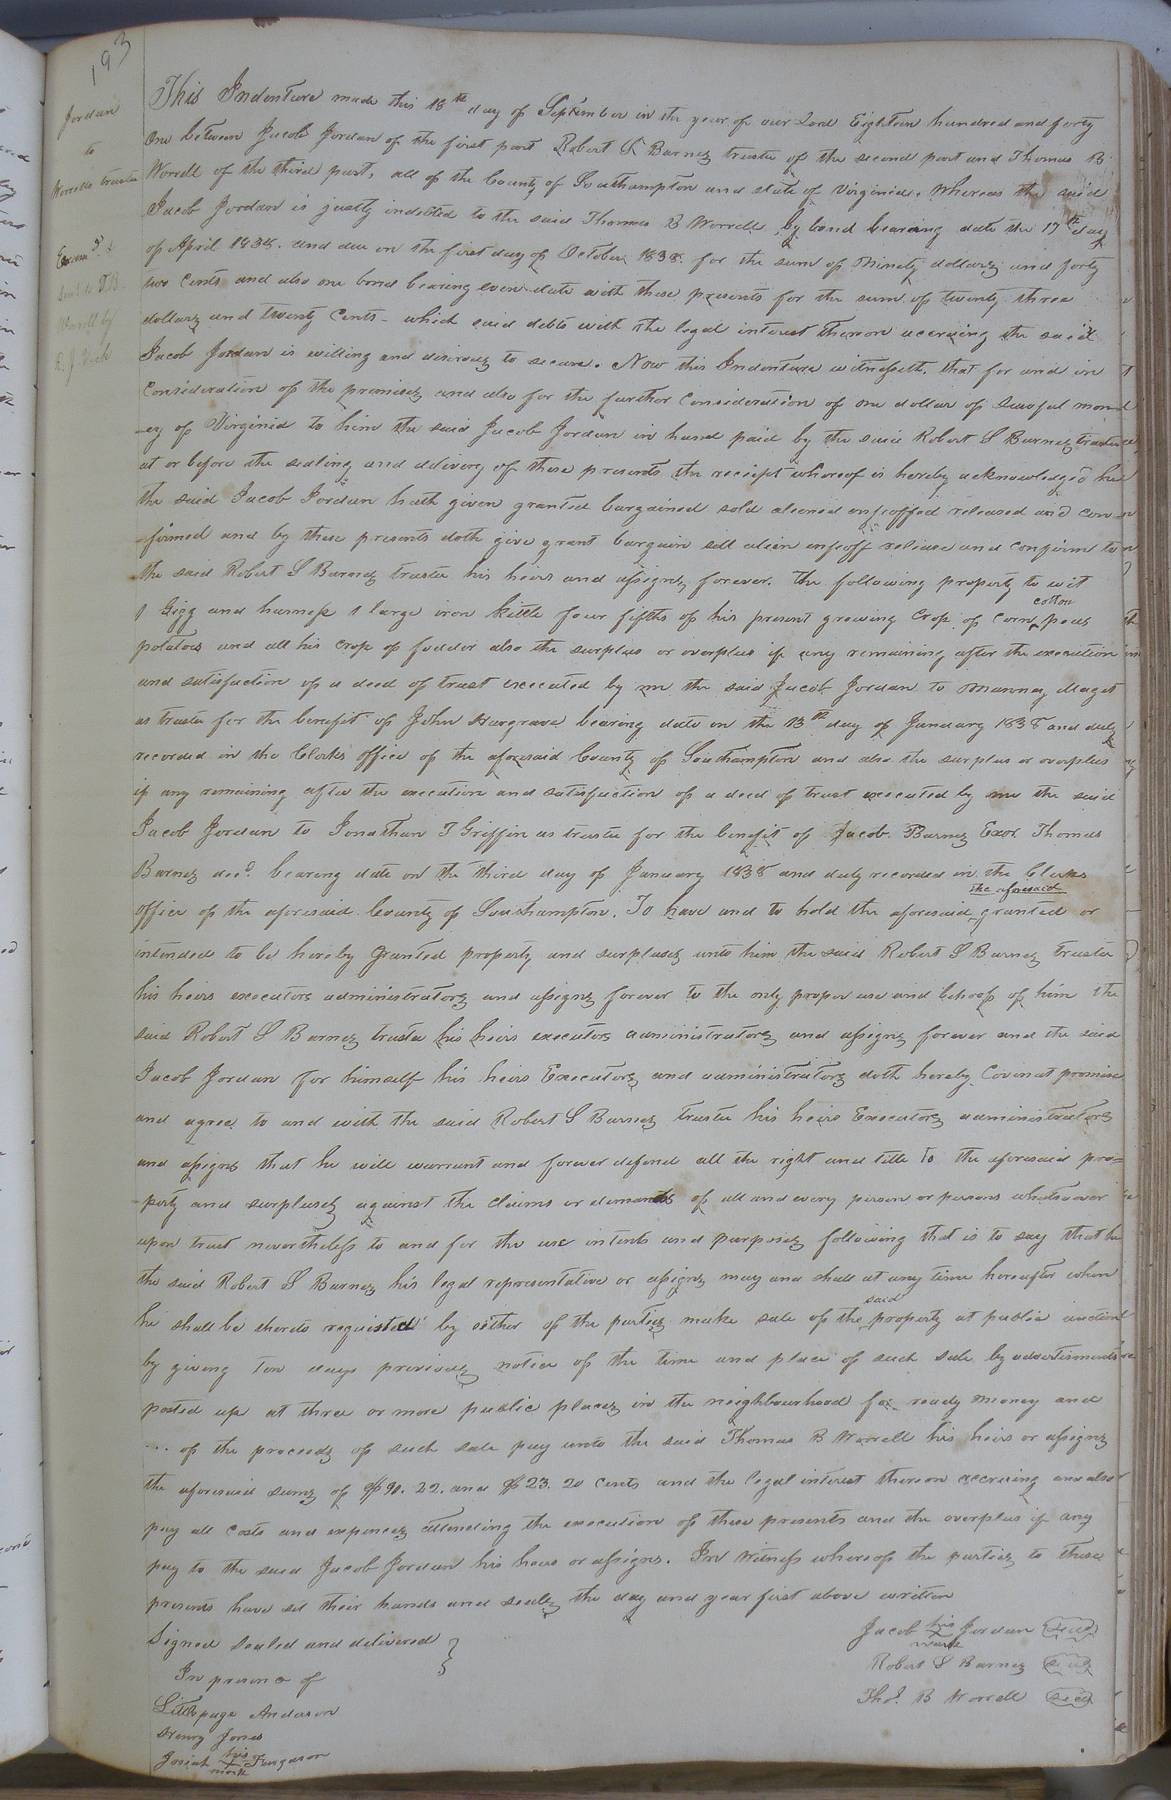 193
Jordan
to
Worrells trustee
Examd &
sent to T B
Worrell by
This Indenture made this 18th day of September in the year of our Lord Eighteen hundred and forty
One between Jacob Jordan of the first part Robert S Barnes trustee of the second part and Thomas B
Worrell of the third part, all of the County of Southampton and state of Virginia. Whereas the said
Jacob Jordan is justly indebted to the said Thomas B Worrell by bond bearing date the 17th day
of April 1838. and due on the first day of October 1838 for the sum of Ninety dollars and forty
two cents and also one bond bearing even date with these presents for the sum of twenty three
dollars and twenty Cents - which said debts with the legal interest thereon accruing the said
Jacob Jordan is willing and desirous to secure. Now this Indenture witnesseth, that for and in
Consideration of the premises and also for the further Consideration of one dollar of Lawful mon
-ey of Virginia to him the said Jacob Jordan in hand paid by the said Robert S Barnes trustee
at or before the sealing and delivery of these presents the receipt whereof is hereby acknowledged he
the said Jacob Jordan hath given granted bargained sold aliened enfeoffed released and con-
-firmed and by these presents doth give grant bargain sell alien enfeoff release and confirm to
the said Robert S Barnes trustee his heirs and assigns forever. the following property to wit
1 Gigg and harness 1 large iron kittle four fifths of his present growing Crop of Corn cotton peas
potatoes and all his crop of fodder also the surplus or overplus if any remaining after the execution
and satisfaction of a deed of trust executed by me the said Jacob Jordan to
as trustee for the benefit of John Hargrave bearing date on the 13th day of January 1838 and duly
recorded in the Clerks office of the aforesaid County of Southampton and also the surplus or overplus
if any remaining after the execution and satisfaction of a deed of trust executed by me the said
Jacob Jordan to Jonathan T Griffin as trustee for the benefit of Jacob Barnes Exor. Thomas
Barnes decd. bearing date on the third day of January 1838 and duly recorded in the Clerks
office of the aforesaid County of Southampton. To have and to hold the aforesaid the aforesaid granted or
intended to be hereby granted property and surpluses unto him the said Robert S Barnes trustee
his heirs executors administrators and assigns forever to the only proper use and behoof of him the
said Robert S Barnes trustee his heirs executors administrators and assigns forever and the said
Jacob Jordan for himself his heirs Executors and administrators doth hereby Covenat promise
and agree to and with the said Robert S Barnes trustee his heirs Executors administrators
and assigns that he will warrant and forever defend all the right and title to the aforesaid pro=
-perty and surpluses against the claims or demands of all and every person or persons whatsoever
upon trust nevertheless to and for the use intents and purposes following that is to say that he
the said Robert S Barnes his legal representative or assigns may and shall at any time hereafter when
he shall be thereto requested by either of the parties make sale of the said property at public auction
by giving Ten days previous notice of the time and place of such sale by advertisments
posted up at three or more public places in the neighbourhood for ready money and
of the proceeds of such sale pay unto the said Thomas B Worrell his heirs or assigns
the aforesaid sums of $90. 22. and $23. 20 cents and the legal interest thereon accruing and also
pay all costs and expences attending the execution of these presents and the overplus if any
pay to the said Jacob Jordan his heirs or assigns. In Witness whereof the parties to these
presents have set their hands and seals the day and year first above written
Signed sealed and delivered
In presence of
Littlepage Anderson
Henry Jones
Josiah his X mark Furgason
Jacob his X mark Jordan seal
Robert S Barnes seal
Thos. B Worrell seal